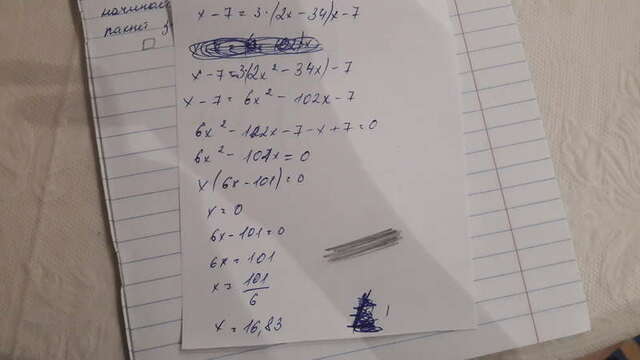 x - 7 = 3 · (2x - 34)x - 7
x - 7 = 3(2x² - 34x) - 7
x - 7 = 6x² - 102x - 7
6x² - 102x - 7 - x + 7 = 0
6x² - 101x = 0
x(6x - 101) = 0
x = 0
6x - 101 = 0
6x = 101
x = 101/6
x = 16,83